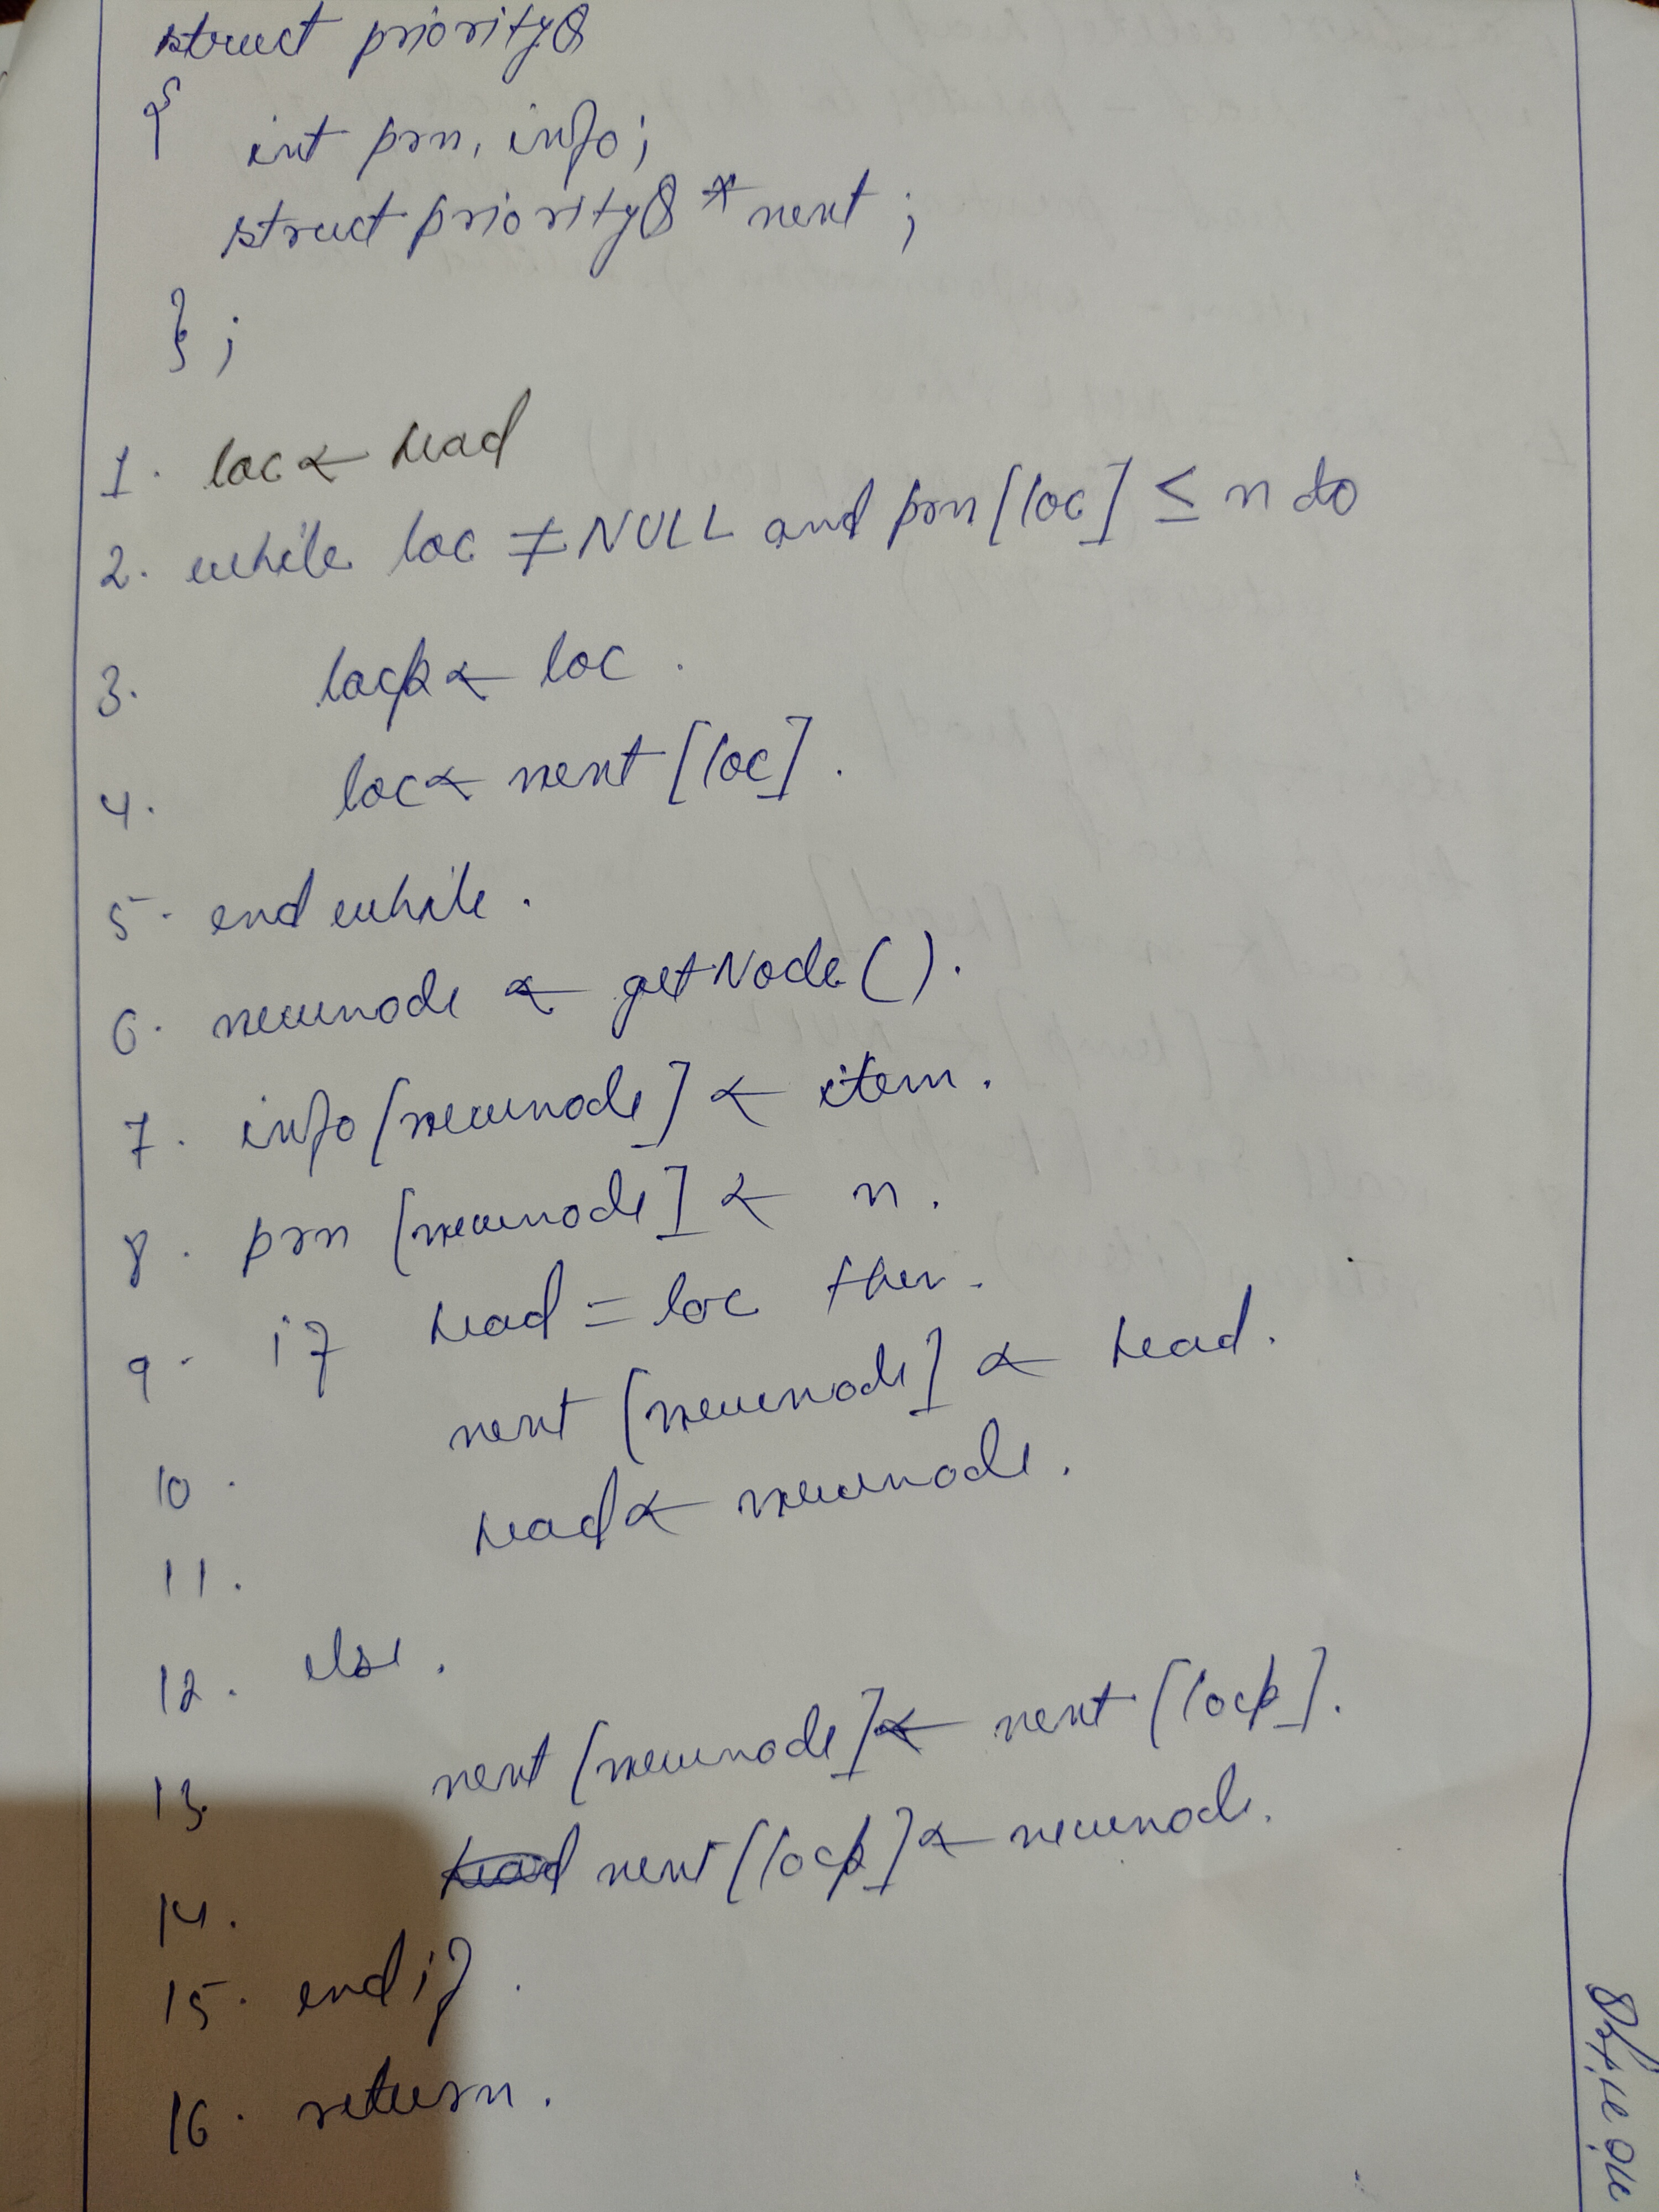 struct priorityQ
{
int prn, info;
struct priorityQ * next ;
} ;
1. loc ← head
2. while loc ≠ NULL and prn [loc] ≤ n do
3. locp ← loc .
4. loc ← next [loc] .
5. end while .
6. newnode ← getNode ( ) .
7. info [newnode] ← item .
8. prn [newnode] ← n .
9. if head = loc then .
10. next [newnode] ← head .
11. head ← newnode .
12. else .
13. next [newnode] ← next [locp] .
14. next [locp] ← newnode .
15. end if .
16. return .